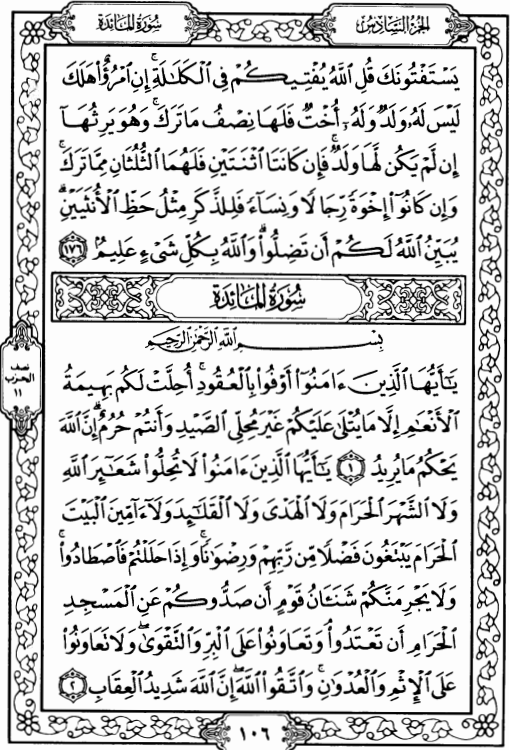 سُورَةُ المَائِدَة
الجُزْءُ السَّادِسُ
يَسْتَفْتُونَكَ قُلِ ٱللَّهُ يُفْتِيكُمْ فِى ٱلْكَلَٰلَةِۚ إِنِ ٱمْرُؤٌا۟ هَلَكَ
لَيْسَ لَهُۥ وَلَدٌ وَلَهُۥٓ أُخْتٌ فَلَهَا نِصْفُ مَا تَرَكَۚ وَهُوَ يَرِثُهَآ
إِن لَّمْ يَكُن لَّهَا وَلَدٌۚ فَإِن كَانَتَا ٱثْنَتَيْنِ فَلَهُمَا ٱلثُّلُثَانِ مِمَّا تَرَكَۚ
وَإِن كَانُوٓا۟ إِخْوَةً رِّجَالًا وَنِسَآءً فَلِلذَّكَرِ مِثْلُ حَظِّ ٱلْأُنثَيَيْنِۗ
يُبَيِّنُ ٱللَّهُ لَكُمْ أَن تَضِلُّوا۟ۗ وَٱللَّهُ بِكُلِّ شَىْءٍ عَلِيمٌۢ ١٧٦
سُورَةُ المَائِدَة
بِسْمِ ٱللَّهِ ٱلرَّحْمَٰنِ ٱلرَّحِيمِ
يَٰٓأَيُّهَا ٱلَّذِينَ ءَامَنُوٓا۟ أَوْفُوا۟ بِٱلْعُقُودِۚ أُحِلَّتْ لَكُم بَهِيمَةُ
ٱلْأَنْعَٰمِ إِلَّا مَا يُتْلَىٰ عَلَيْكُمْ غَيْرَ مُحِلِّى ٱلصَّيْدِ وَأَنتُمْ حُرُمٌۗ إِنَّ ٱللَّهَ
يَحْكُمُ مَا يُرِيدُ ١ يَٰٓأَيُّهَا ٱلَّذِينَ ءَامَنُوا۟ لَا تُحِلُّوا۟ شَعَٰٓئِرَ ٱللَّهِ
وَلَا ٱلشَّهْرَ ٱلْحَرَامَ وَلَا ٱلْهَدْىَ وَلَا ٱلْقَلَٰٓئِدَ وَلَآ ءَآمِّينَ ٱلْبَيْتَ
ٱلْحَرَامَ يَبْتَغُونَ فَضْلًا مِّن رَّبِّهِمْ وَرِضْوَٰنًاۚ وَإِذَا حَلَلْتُمْ فَٱصْطَادُوا۟ۚ
وَلَا يَجْرِمَنَّكُمْ شَنَـَٔانُ قَوْمٍ أَن صَدُّوكُمْ عَنِ ٱلْمَسْجِدِ
ٱلْحَرَامِ أَن تَعْتَدُوا۟ۘ وَتَعَاوَنُوا۟ عَلَى ٱلْبِرِّ وَٱلتَّقْوَىٰۖ وَلَا تَعَاوَنُوا۟
عَلَى ٱلْإِثْمِ وَٱلْعُدْوَٰنِۚ وَٱتَّقُوا۟ ٱللَّهَۖ إِنَّ ٱللَّهَ شَدِيدُ ٱلْعِقَابِ ٢
نصف
الحزب
١١
١٠٦